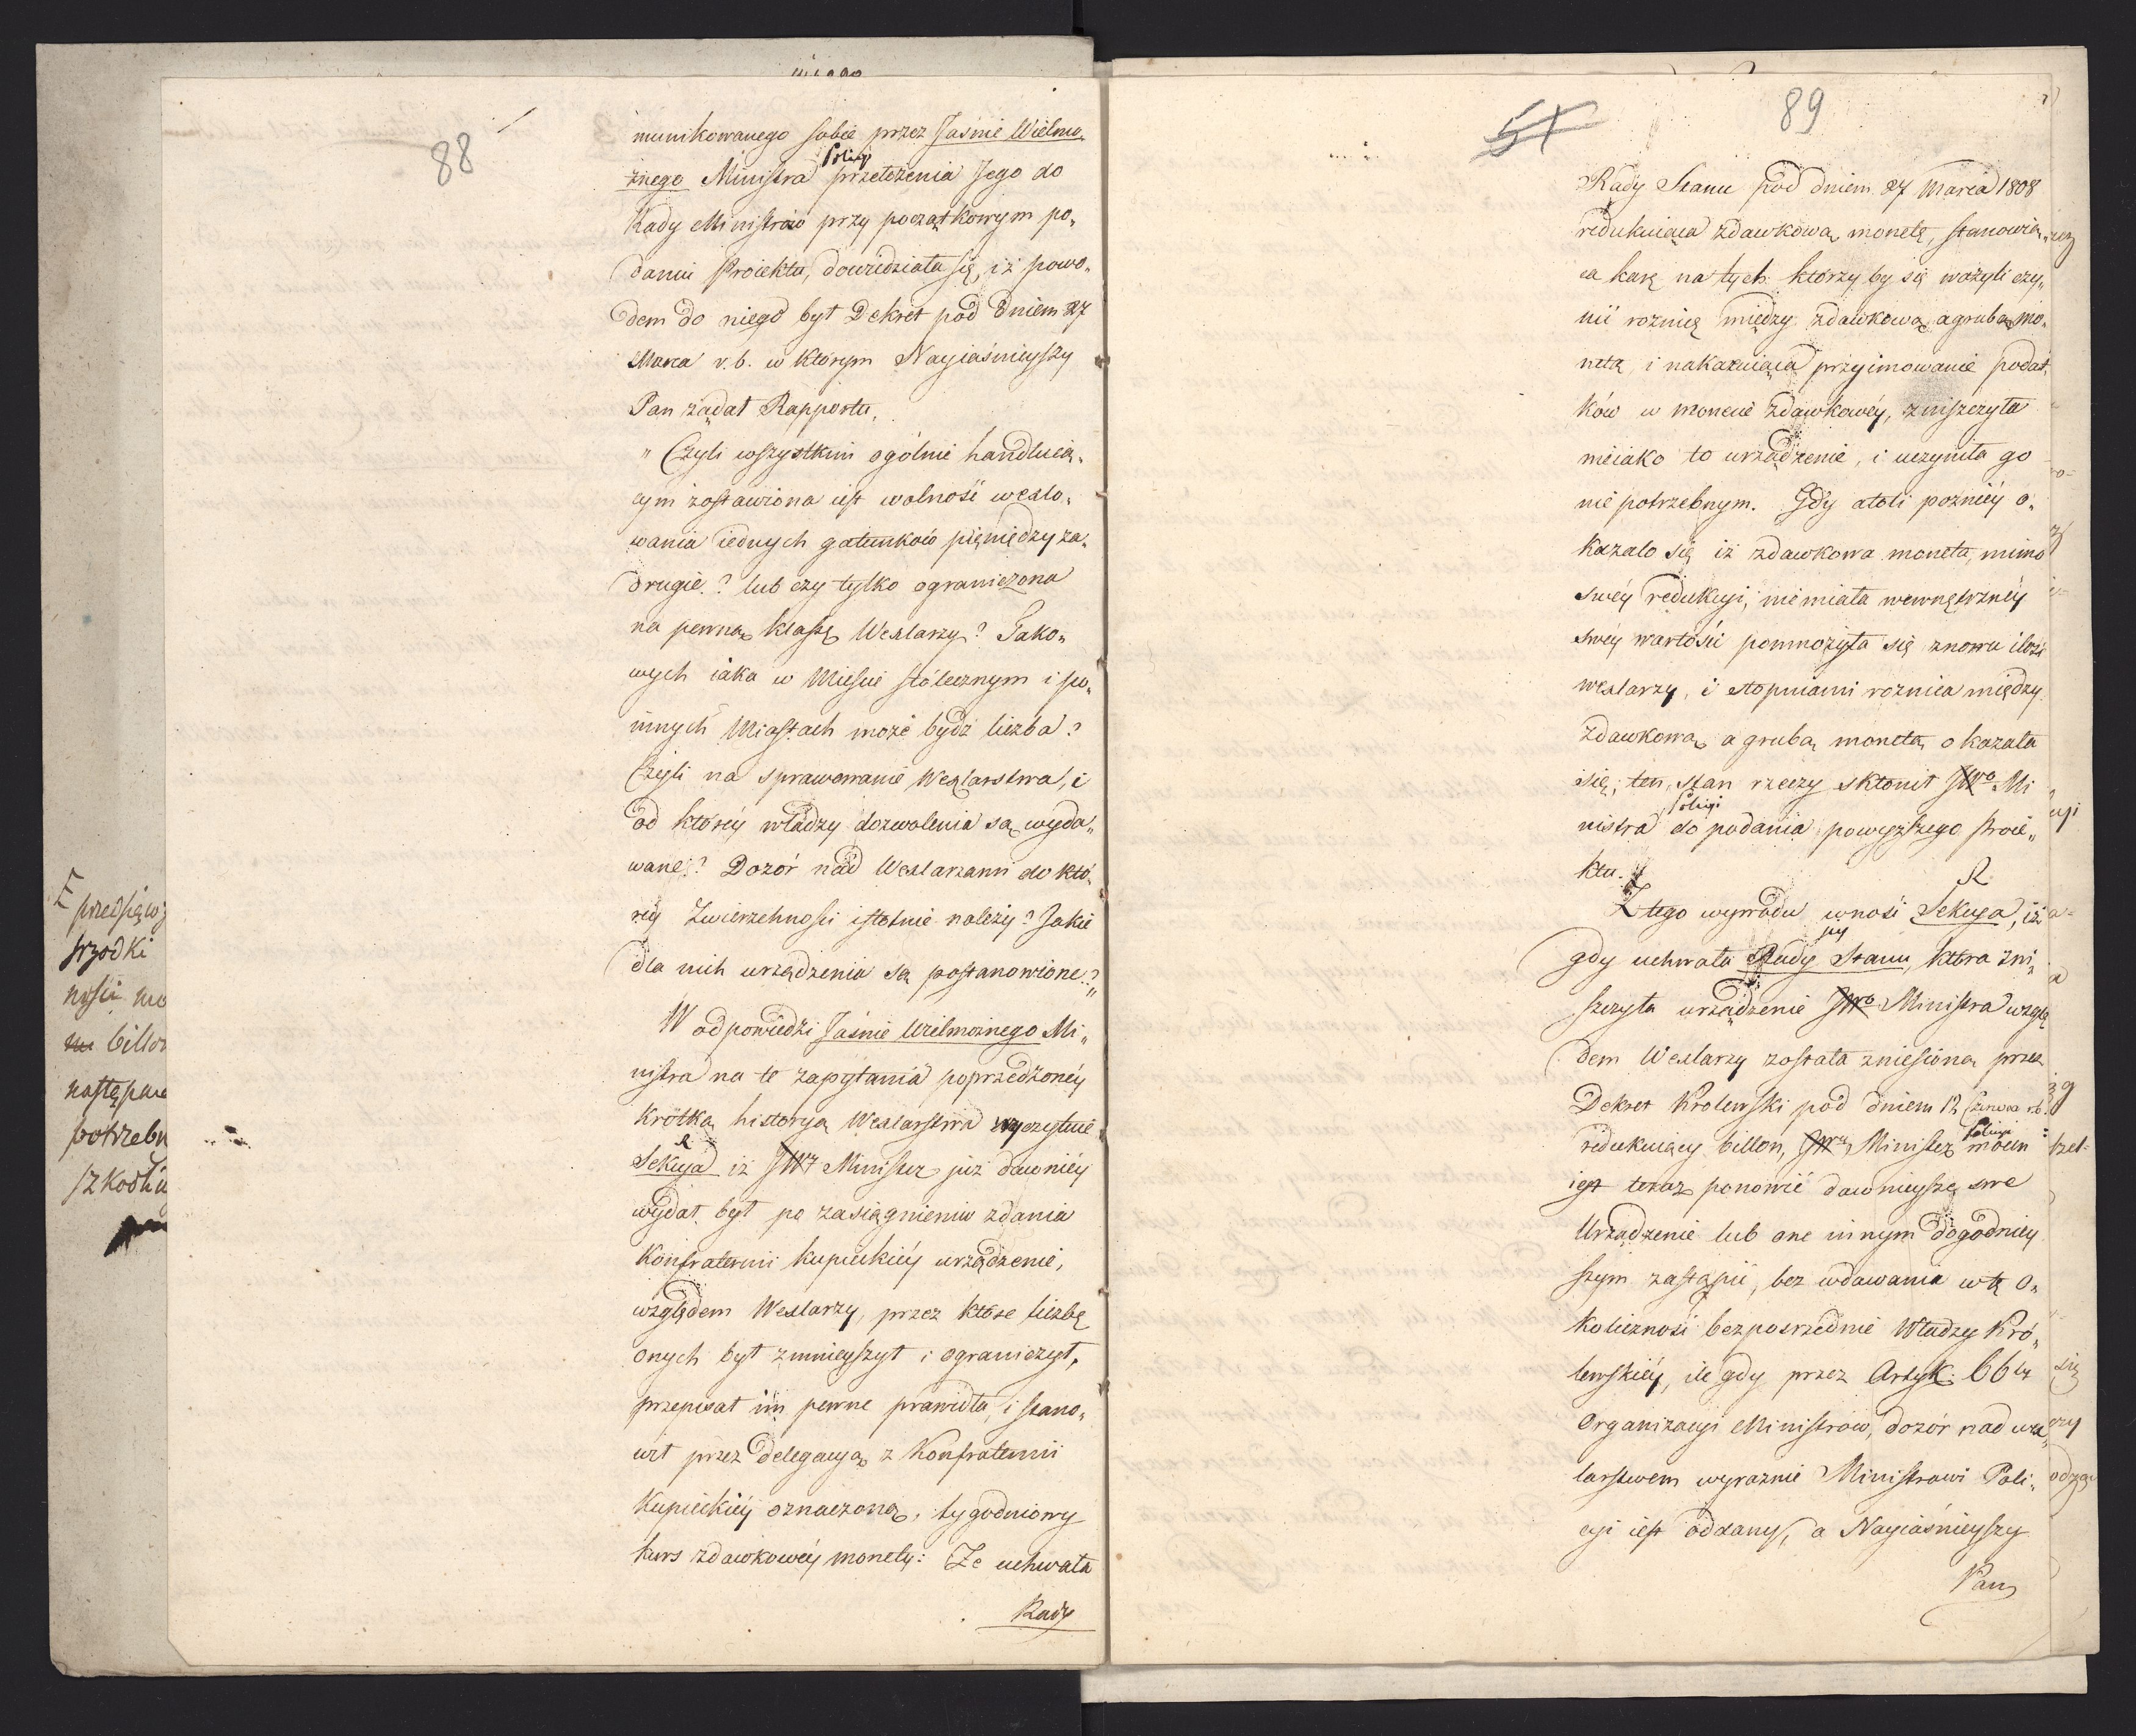 88
munikowanego sobie przez Jaśnie Wielmo
żnego Ministra Policyi przełożenia Jego do
Rady Ministrów przy początkowym po„
daniu Proiektu, dowiedziała się, iż powo„
dem do niego był Dekret pod dniem 27
Marca r.b. w którym Nayiaśnieyszy
Pan żądał Rapportu.
„ Czyli wszystkim ogólnie handluią„
cym zostawiona iest wolność wexlo„
wania iednych gatunków pięniędzy za„
drugie? lub czy tylko ograniczona
na pewną klassę Wexlarzy? Tako„
wych iaka w Mieście stółecznym i po„
innych Miastach może bydź liczba?
Czyli na sprawowanie Wexlarstwa, i
od którey władzy dozwolenia są wyda„
wane? Dozór nad Wexlarzami do któ„
rey Zwierzchności istotnie należy? Jakie
dla nich urządzenia są postanowione?„
W odpowiedzi Jaśnie Wielmożnego Mi„
nistra na te zapytania poprzedzoney
krótką historyą Wexlarstwa wyczytuie
Sekcya iż JWy Minister już dawniéy
wydał był po zasiągnieniu zdania
Konfraternii kupieckiéy urządzenie,
względem Wexlarzy, przez które liczbę
onych był zmnieyszył i ograniczył,
przepisał im pewne prawidła, i stano„
wił przez Delegacyą z Konfraternii
Kupieckiéy oznaczoną, tygodniowy
kurs zdawkowéy monety: Ze uchwała
Rady
przedsięwz
srzodki
ności
billon
następne
potrzebn
szkodli
51
89
Rady Stanu pod dniem 27 Marca 1808
redukuiąca zdawkową monetę, stanowią„
ca karę na tych którzy by się ważyli czy„
nić roznicę między zdawkową a grubą mo„
netą, i nakazuiąca przyimowanie podat„
ków w monecie zdawkowéy, zniszczyła
nieiako to urządzenie, i uczyniła go
nie potrzebnym. Gdy atoli poźniéy o„
kazało się iż zdawkowa moneta, mimo
swéy redukcyi, nie miała wewnętrznéy
swéy wartości pomnożyła się znowu ilość
wexlarzy, i stopniami roznica między
zdawkową a grubą monetą okazała
się; ten stan rzeczy skłonił JWo Mi
nistra Policyi do podania powyższego Proie„
ktu.
Z tego wywodu wnosi Sekcya, iż
gdy uchwała Rady Stanu, która zni„
szczyła urządzenie JWo Ministra wzglę
dem Wexlarzy została zniesioną przez
Dekret Krolewski pod dniem 12 Czerwca r.b.
redukuiący billon, JWy Minister Policyi mocen
iest teraz ponowić dawnieysze swe
Urządzenie lub one innym dogodniey
szym zastąpić, bez wdawania w tę o„
koliczność bezposrzednie Władzy Kró„
lewskiéy, ile gdy przez Artyk: 66ty
Organizacyi Ministrów, dozór nad wex„
larstwem wyraznie Ministrowi Poli„
cyi iest oddany, a Nayiaśnieyszy
Pan